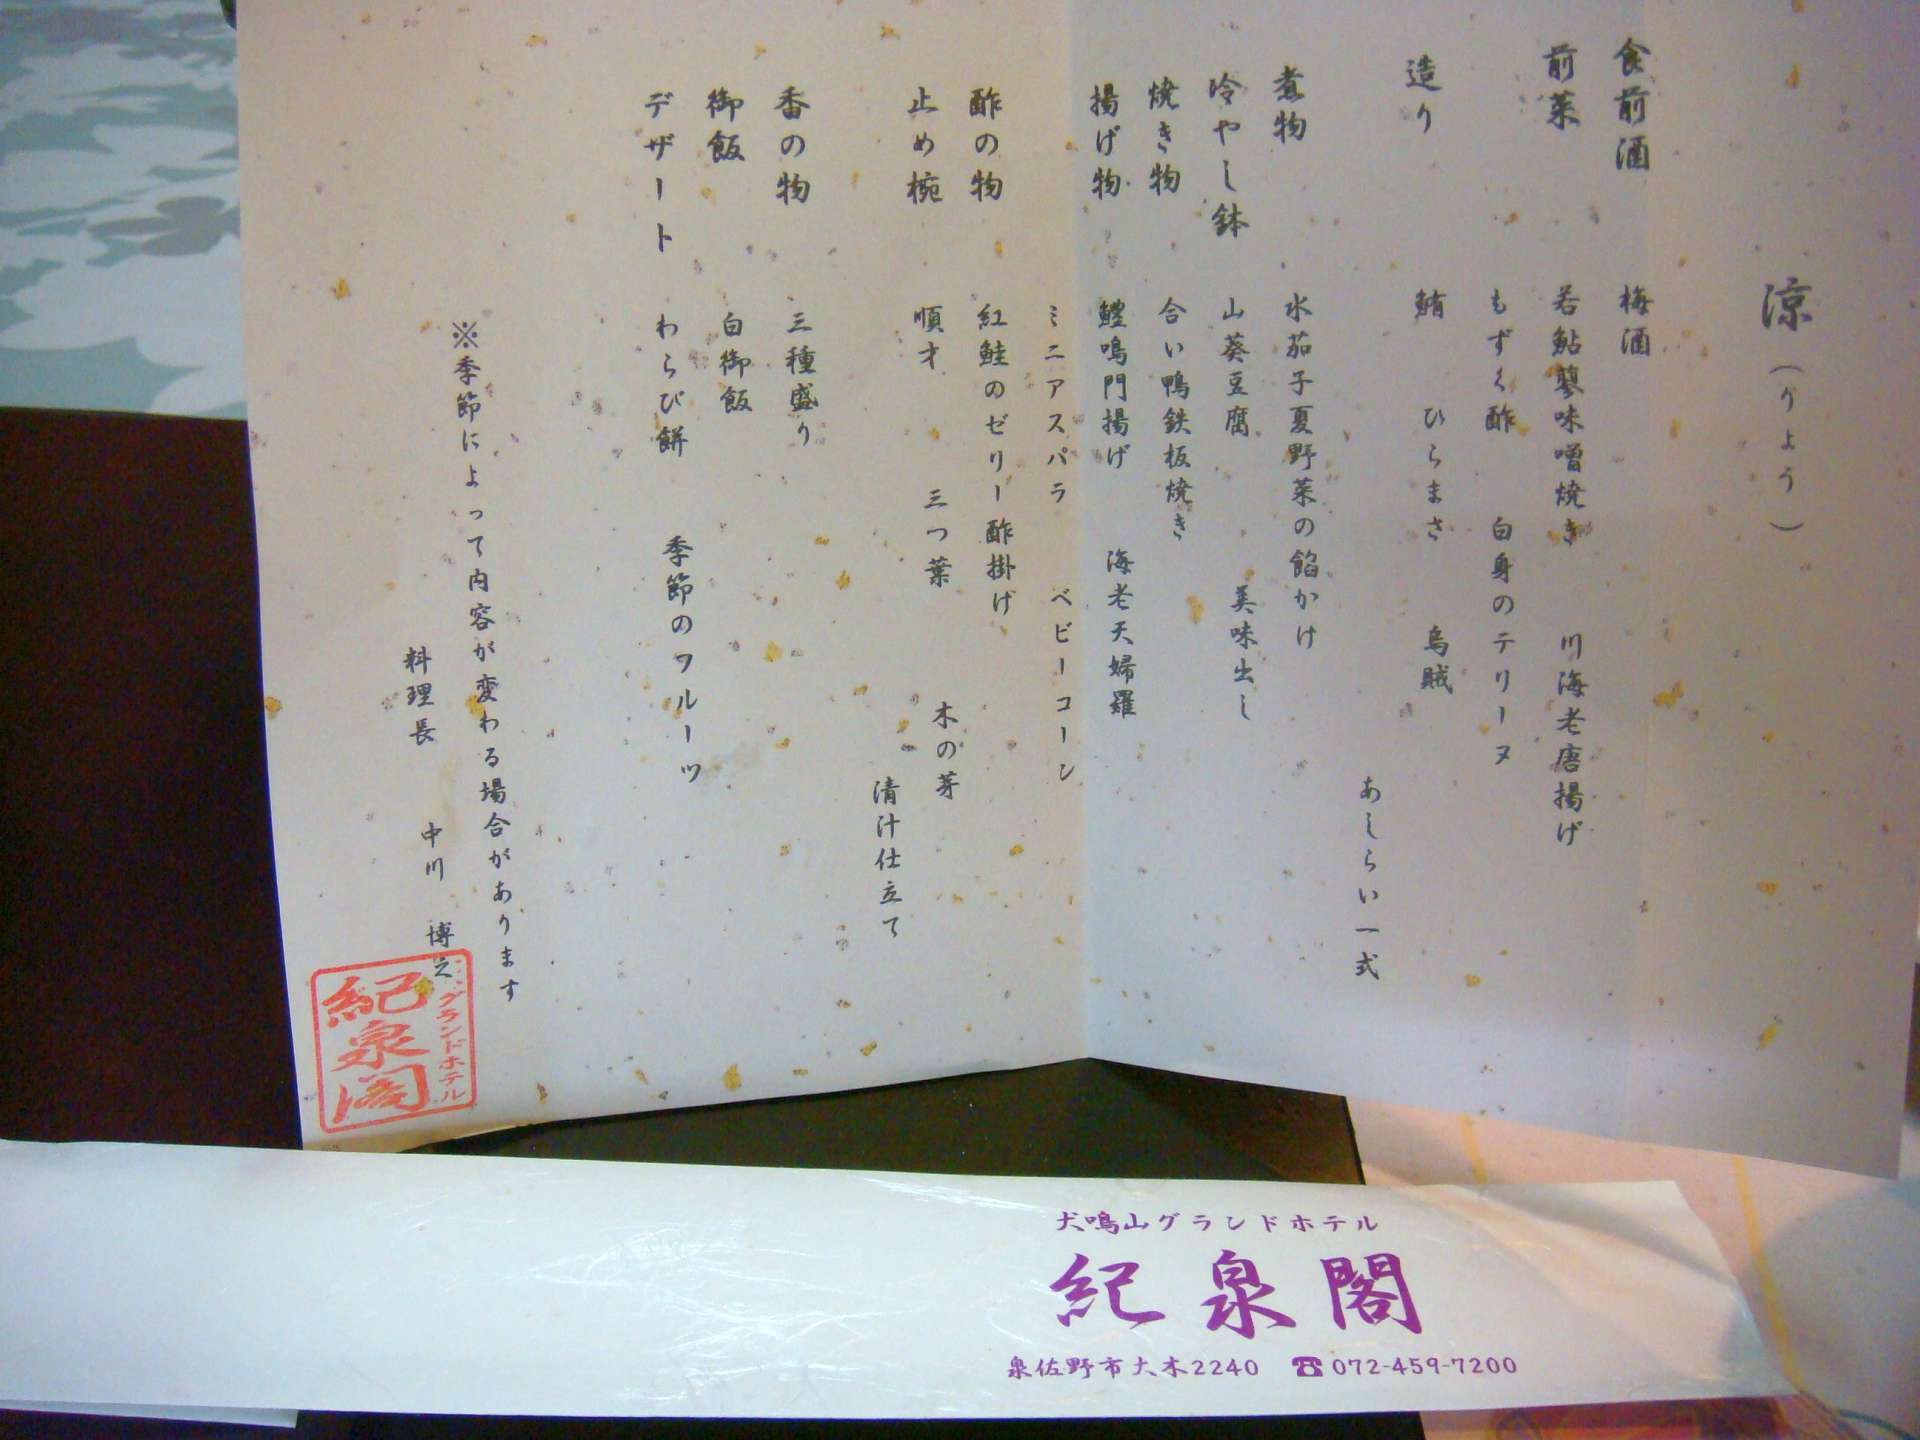 涼(りょう)
食前酒 梅酒
前菜 若鮎蓼味噌焼き 川海老唐揚げ
もずく酢 白身のテリーヌ
造り 鮪 ひらまさ 烏賊
あしらい一式
煮物 水茄子夏野菜の餡かけ
冷やし鉢 山葵豆腐 美味出し
焼き物 合い鴨鉄板焼き
揚げ物 鱧鳴門揚げ 海老天婦羅
ミニアスパラ ベビーコーン
酢の物 紅鮭のゼリー酢掛け
止め椀 順才 三つ葉 木の芽
清汁仕立て
香の物 三種盛り
御飯 白御飯
デザート わらび餅 季節のフルーツ
※季節によって内容が変わる場合があります
料理長 中川 博之
グランドホテル
紀泉閣
犬鳴山グランドホテル
紀泉閣
泉佐野市大木2240 ☎072-459-7200